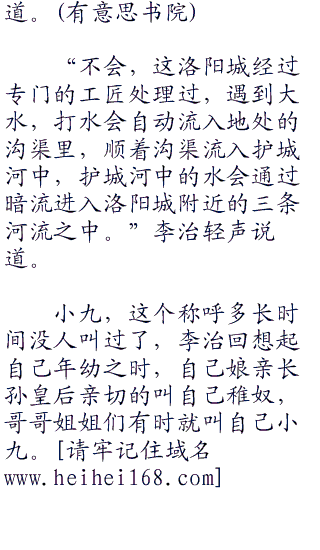 道。(有意思书院)
“不会，这洛阳城经过
专门的工匠处理过，遇到大
水，打水会自动流入地处的
沟渠里，顺着沟渠流入护城
河中，护城河中的水会通过
暗流进入洛阳城附近的三条
河流之中。”李治轻声说
道。
小九，这个称呼多长时
间没人叫过了，李治回想起
自己年幼之时，自己娘亲长
孙皇后亲切的叫自己稚奴，
哥哥姐姐们有时就叫自己小
九。[请牢记住域名
www.heihei168.com]